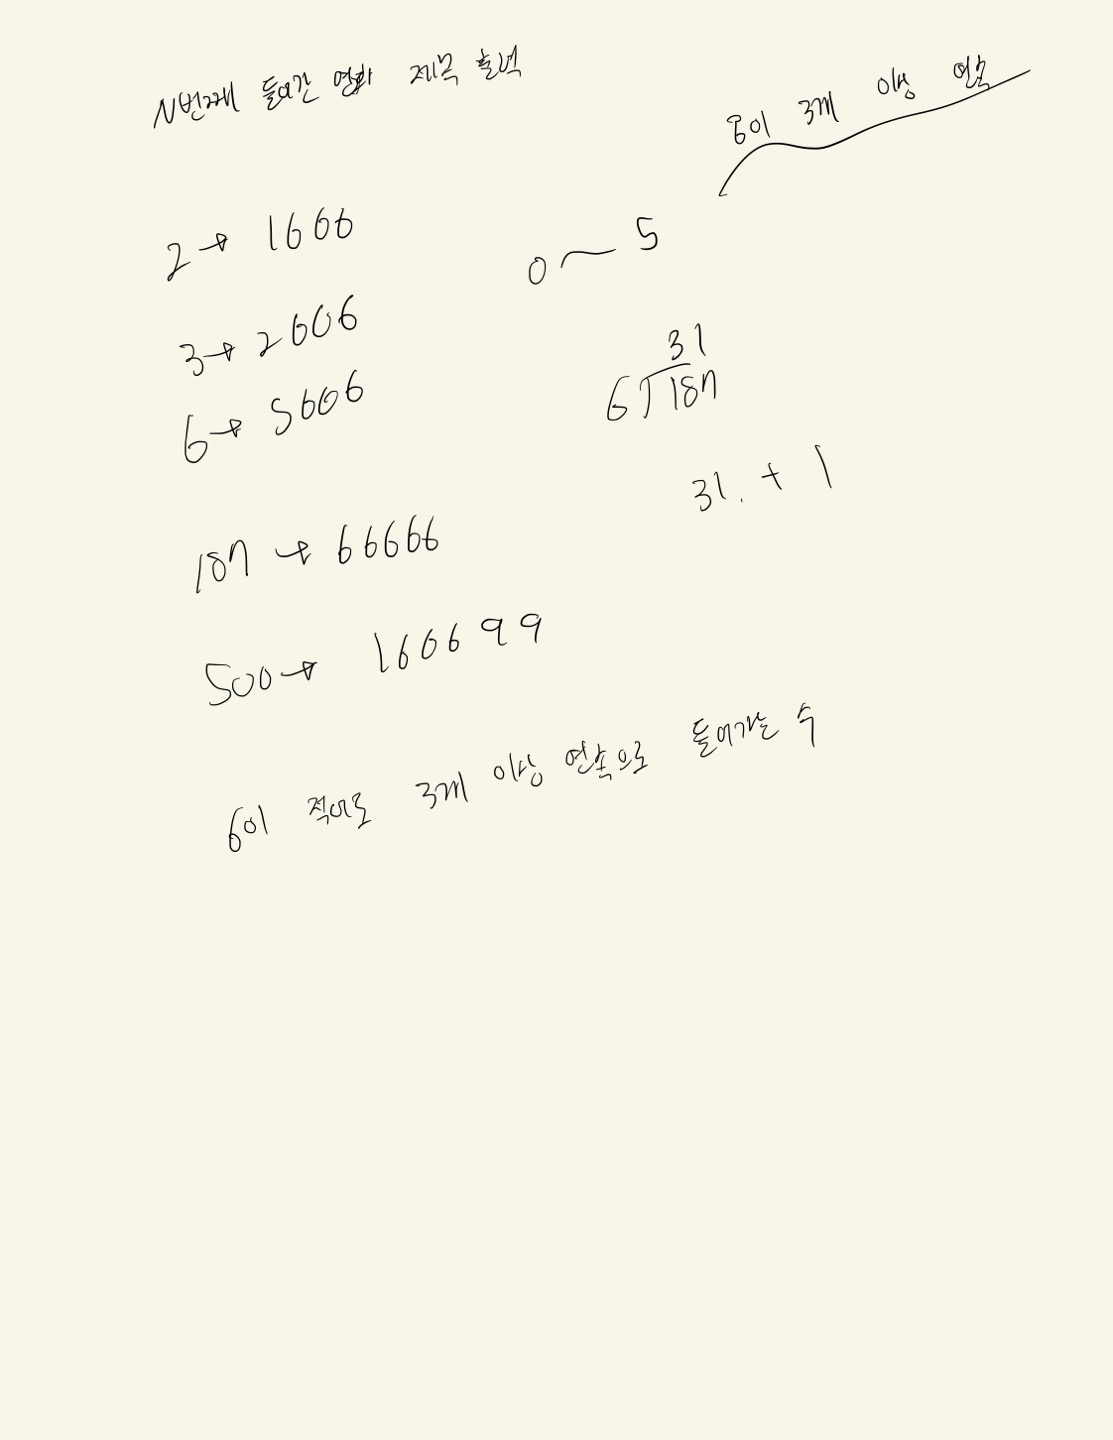 N번째 들어간 영화 제목 출력
6이 3개 이상 연속
2 → 1666
0 ~ 5
3 → 2666
6 → 5666
31
6)187
31. + 1
187 → 66666
500 → 166699
6이 적어도 3개 이상 연속으로 들어가는 수